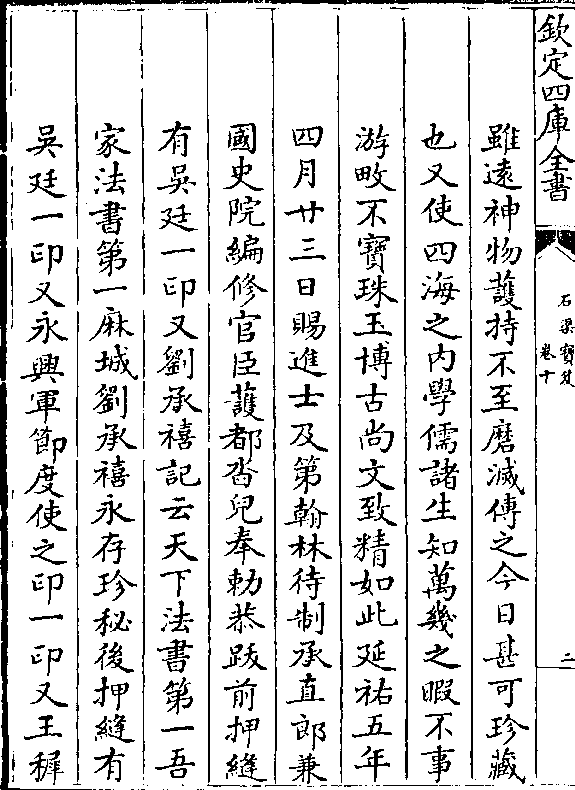 欽定四庫全書
石渠寶笈
卷十
二
雖遠神物䕶持不至磨滅傳之今日甚可珍藏
也又使四海之内學儒諸生知萬幾之暇不事
游畋不寶珠玉博古尚文致精如此延祐五年
四月廿三日賜進士及第翰林待制承直郎兼
國史院編修官臣䕶都沓兒奉勅恭跋前押縫
有吳廷一印又劉承禧記云天下法書第一吾
家法書第一麻城劉承禧永存珍秘後押縫有
吳廷一印又永興軍節度使之印一印又王穉